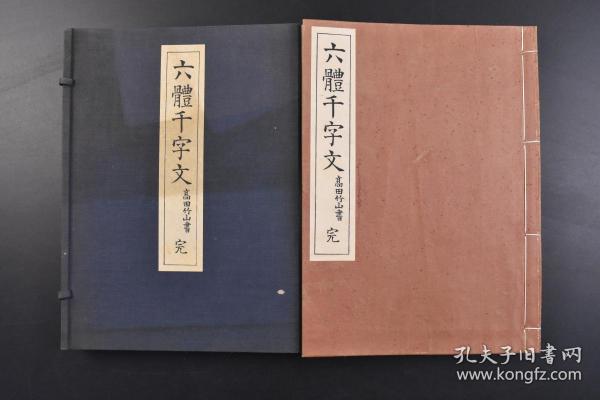 六體千字文
高田竹山書
完
六體千字文
高田竹山書
完
孔夫子旧书网
www.kongfz.com